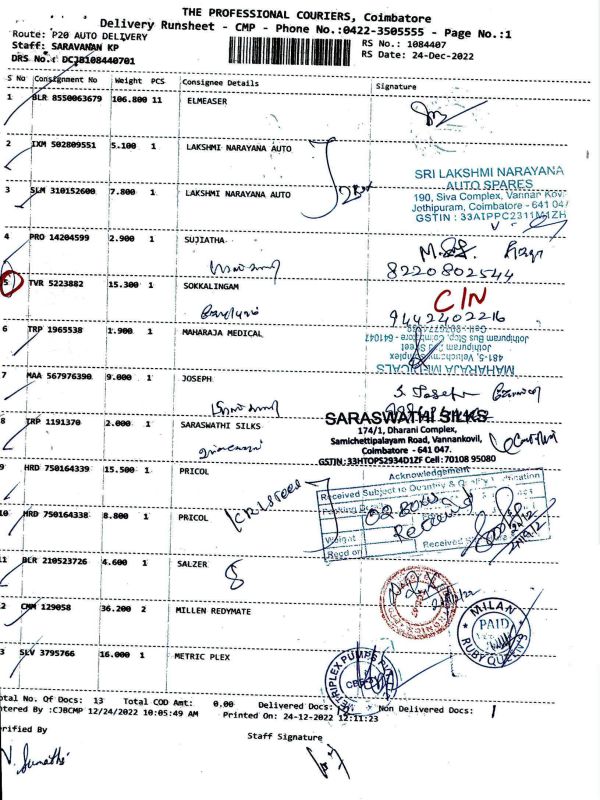 THE PROFESSIONAL COURIERS, Coimbatore
Delivery Runsheet - CMP - Phone No.:0422-3505555 - Page No.:1
Route: P20 AUTO DELIVERY
RS No.: 1084407
Staff: SARAVANAN KP
RS Date: 24-Dec-2022
DRS No.: DCJB108440701
S No Consignment No Weight PCS Consignee Details Signature
1 BLR 8550063679 106.800 11 ELMEASER
2 IXM 502809551 5.100 1 LAKSHMI NARAYANA AUTO
SRI LAKSHMI NARAYANA
AUTO SPARES
190, Siva Complex, Vannar Kovi
Jothipuram, Coimbatore - 641 047
GSTIN : 33AIPPC2311M1ZH
3 SLM 310152600 7.800 1 LAKSHMI NARAYANA AUTO
2 Box
4 PRO 14204599 2.900 1 SUJIATHA
8220802544
5 TVR 5223882 15.300 1 SOKKALINGAM
C/N
9442402216
6 TRP 1965538 1.900 1 MAHARAJA MEDICAL
MAHARAJA MEDICALS
Jothipuram Bus Stop, Coimbatore - 641047
7 MAA 567976390 9.000 1 JOSEPH
S. Joseph
8 TRP 1191370 2.000 1 SARASWATHI SILKS
SARASWATHI SILKS
174/1, Dharani Complex,
Samichettipalayam Road, Vannankovil,
Coimbatore - 641 047.
GSTIN:33HTOPS2934D1ZF Cell: 70108 95080
9 HRD 750164339 15.500 1 PRICOL
Acknowledgement
Received Subject to Quantity & Quality
02 Boxes
Received
Weight
Recd on
Received
10 HRD 750164338 8.800 1 PRICOL
11 BLR 210523726 4.600 1 SALZER
2 CMM 129058 36.200 2 MILLEN REDYMATE
MILAN
PAID
RUBY QUEEN'S
3 SLV 3795766 16.000 1 METRIC PLEX
METRIPLEX PUMPS
otal No. Of Docs: 13 Total COD Amt: 0.00 Delivered Docs: Non Delivered Docs: 1
ntered By :CJBCMP 12/24/2022 10:05:49 AM Printed On: 24-12-2022 12:11:23
erified By
Staff Signature